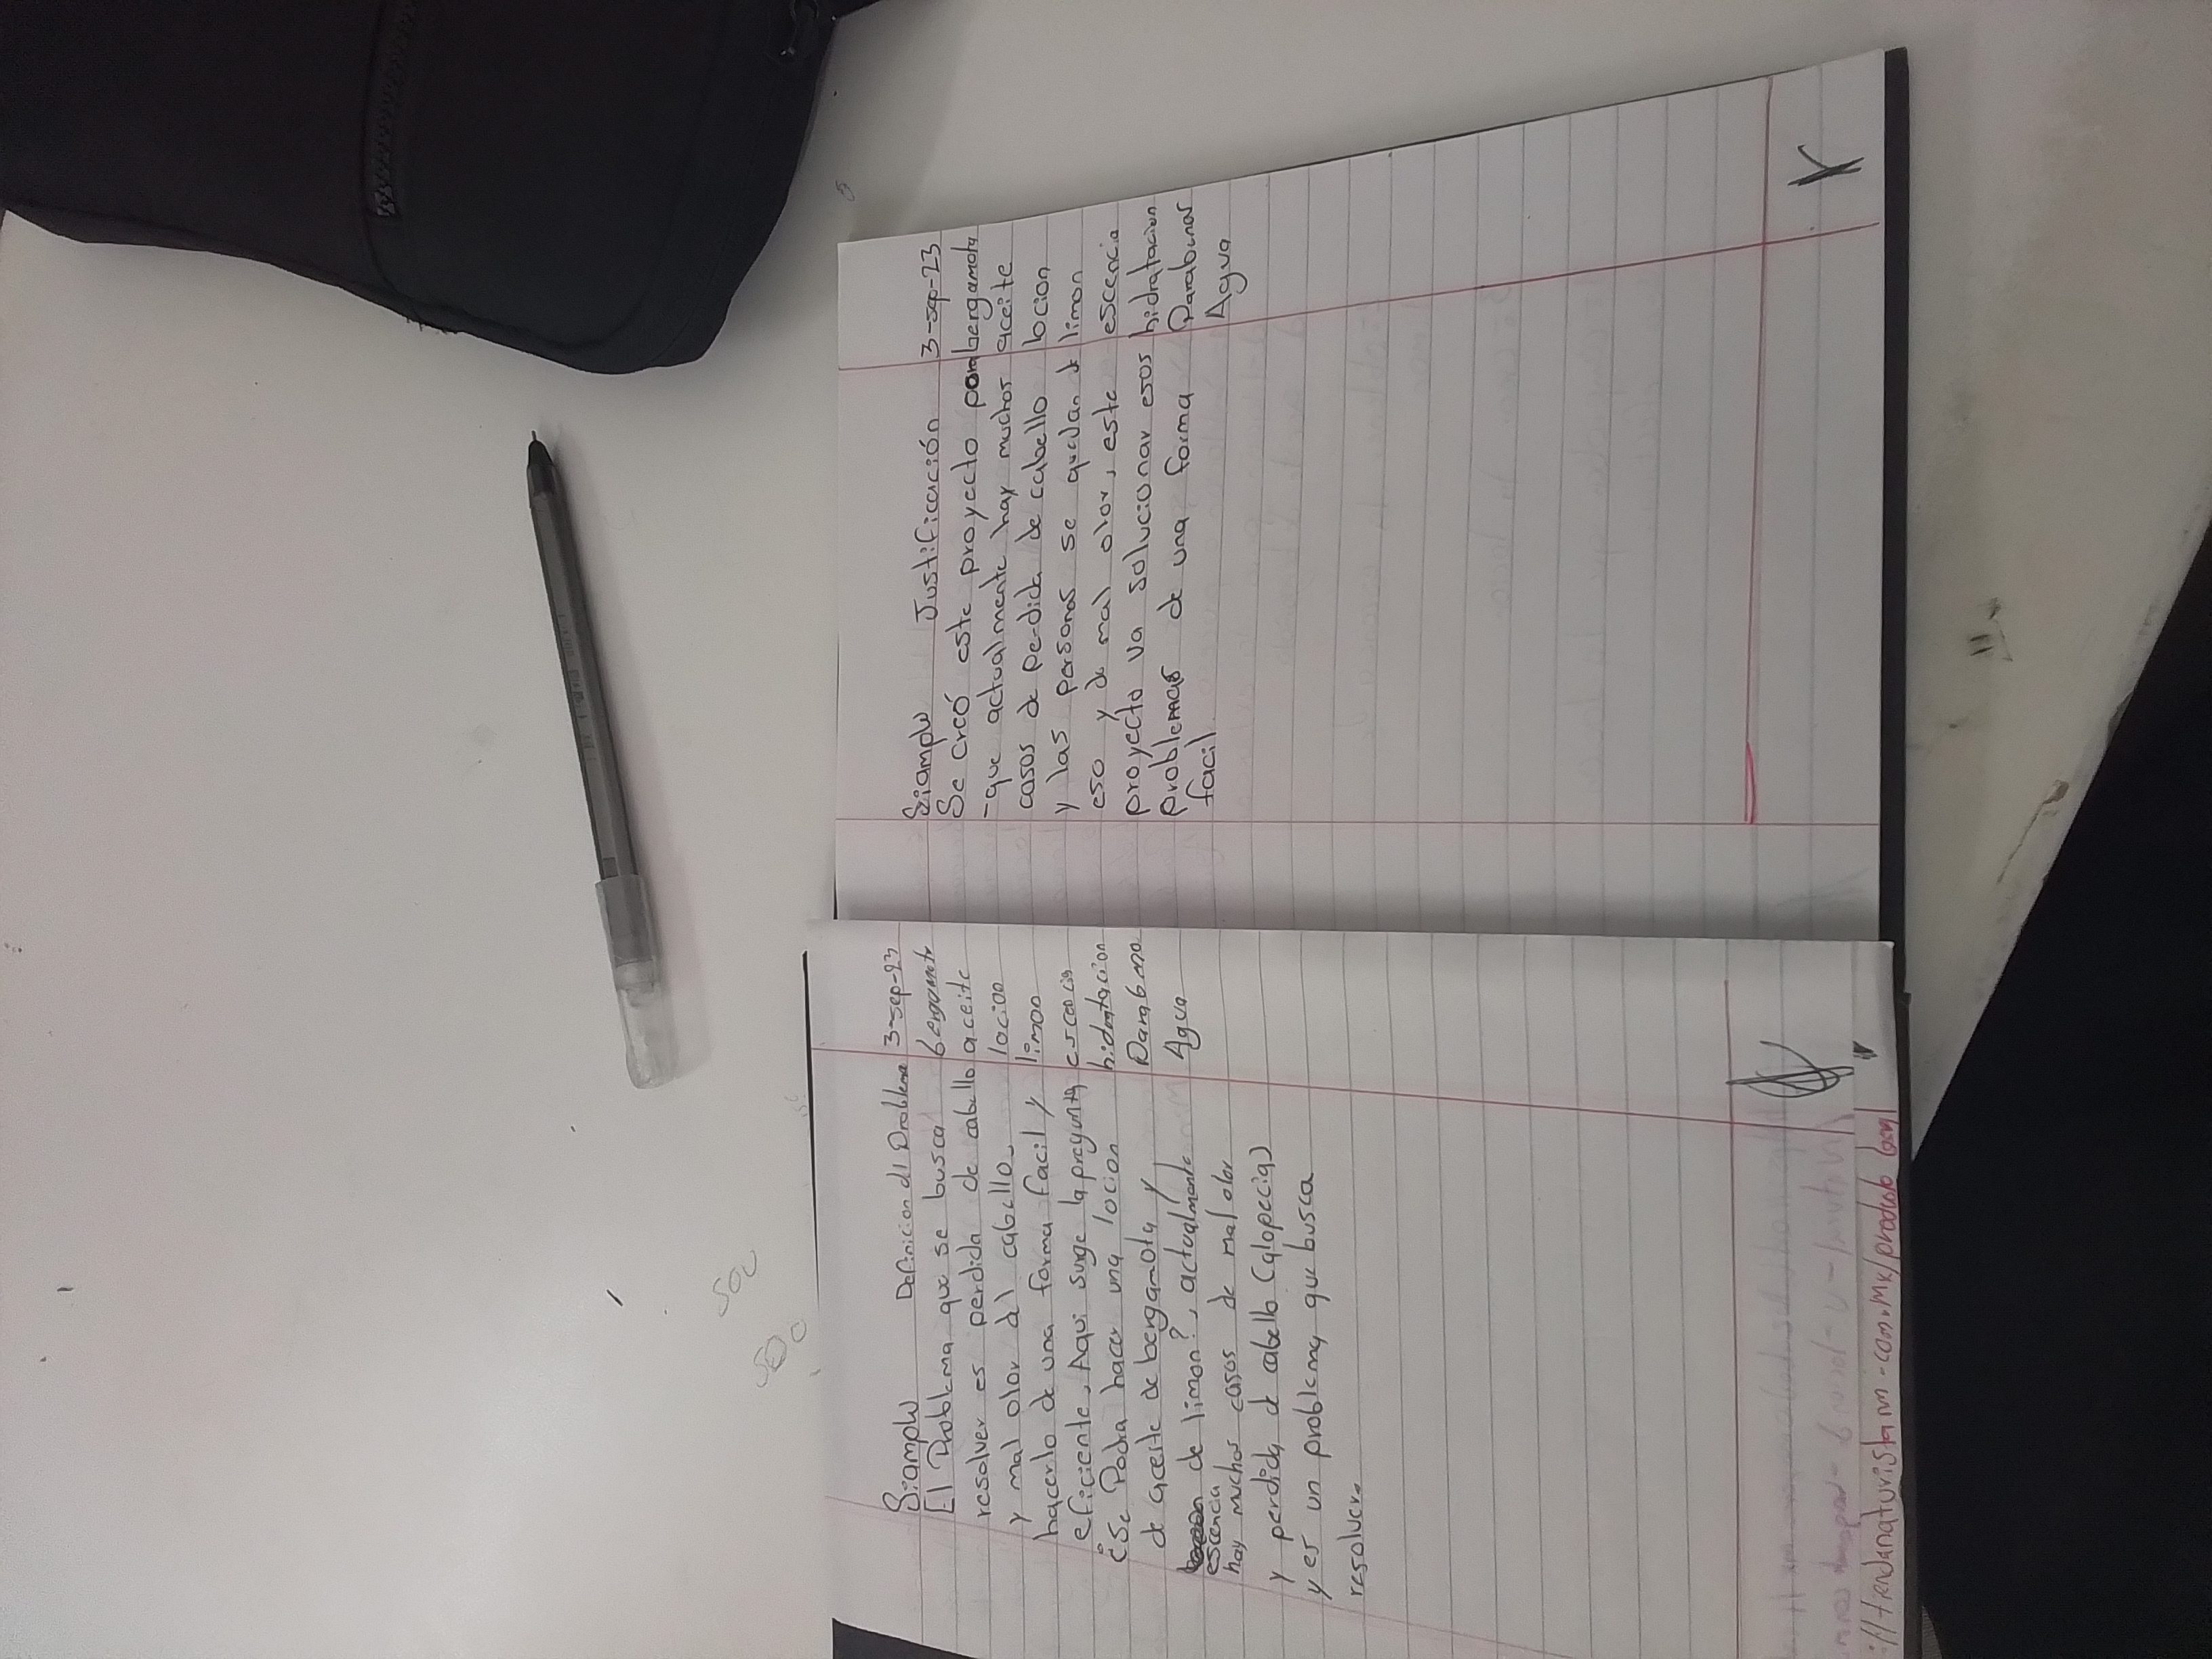 Siampw Definicion dl Problema 3-sep-23
El Problema que se busca bergamota
resolver es perdida de cabello aceite
y mal olor del cabello. locion
hacerlo de una forma facil y limon
eficiente, Aqui surge la pregunta escencia
¿Se Podra hacer una locion hidratacion
de aceite de bergamota y Parabeno
de limon?, actualmente Agua
escencia
hay muchos casos de mal olor
y perdida d cabello (alopecia)
y es un problema que busca
resolver.
://tendanaturistam-com.mx/producto
Siampw Justificación 3-sep-23
Se creó este proyecto por bergamota
-que actualmente hay muchos aceite
casos de pedida de cabello locion
y las personas se quedan d limon
eso y de mal olor, este escencia
proyecto va solucionar esos hidratacion
problemas de una forma Parabenos
facil. Agua